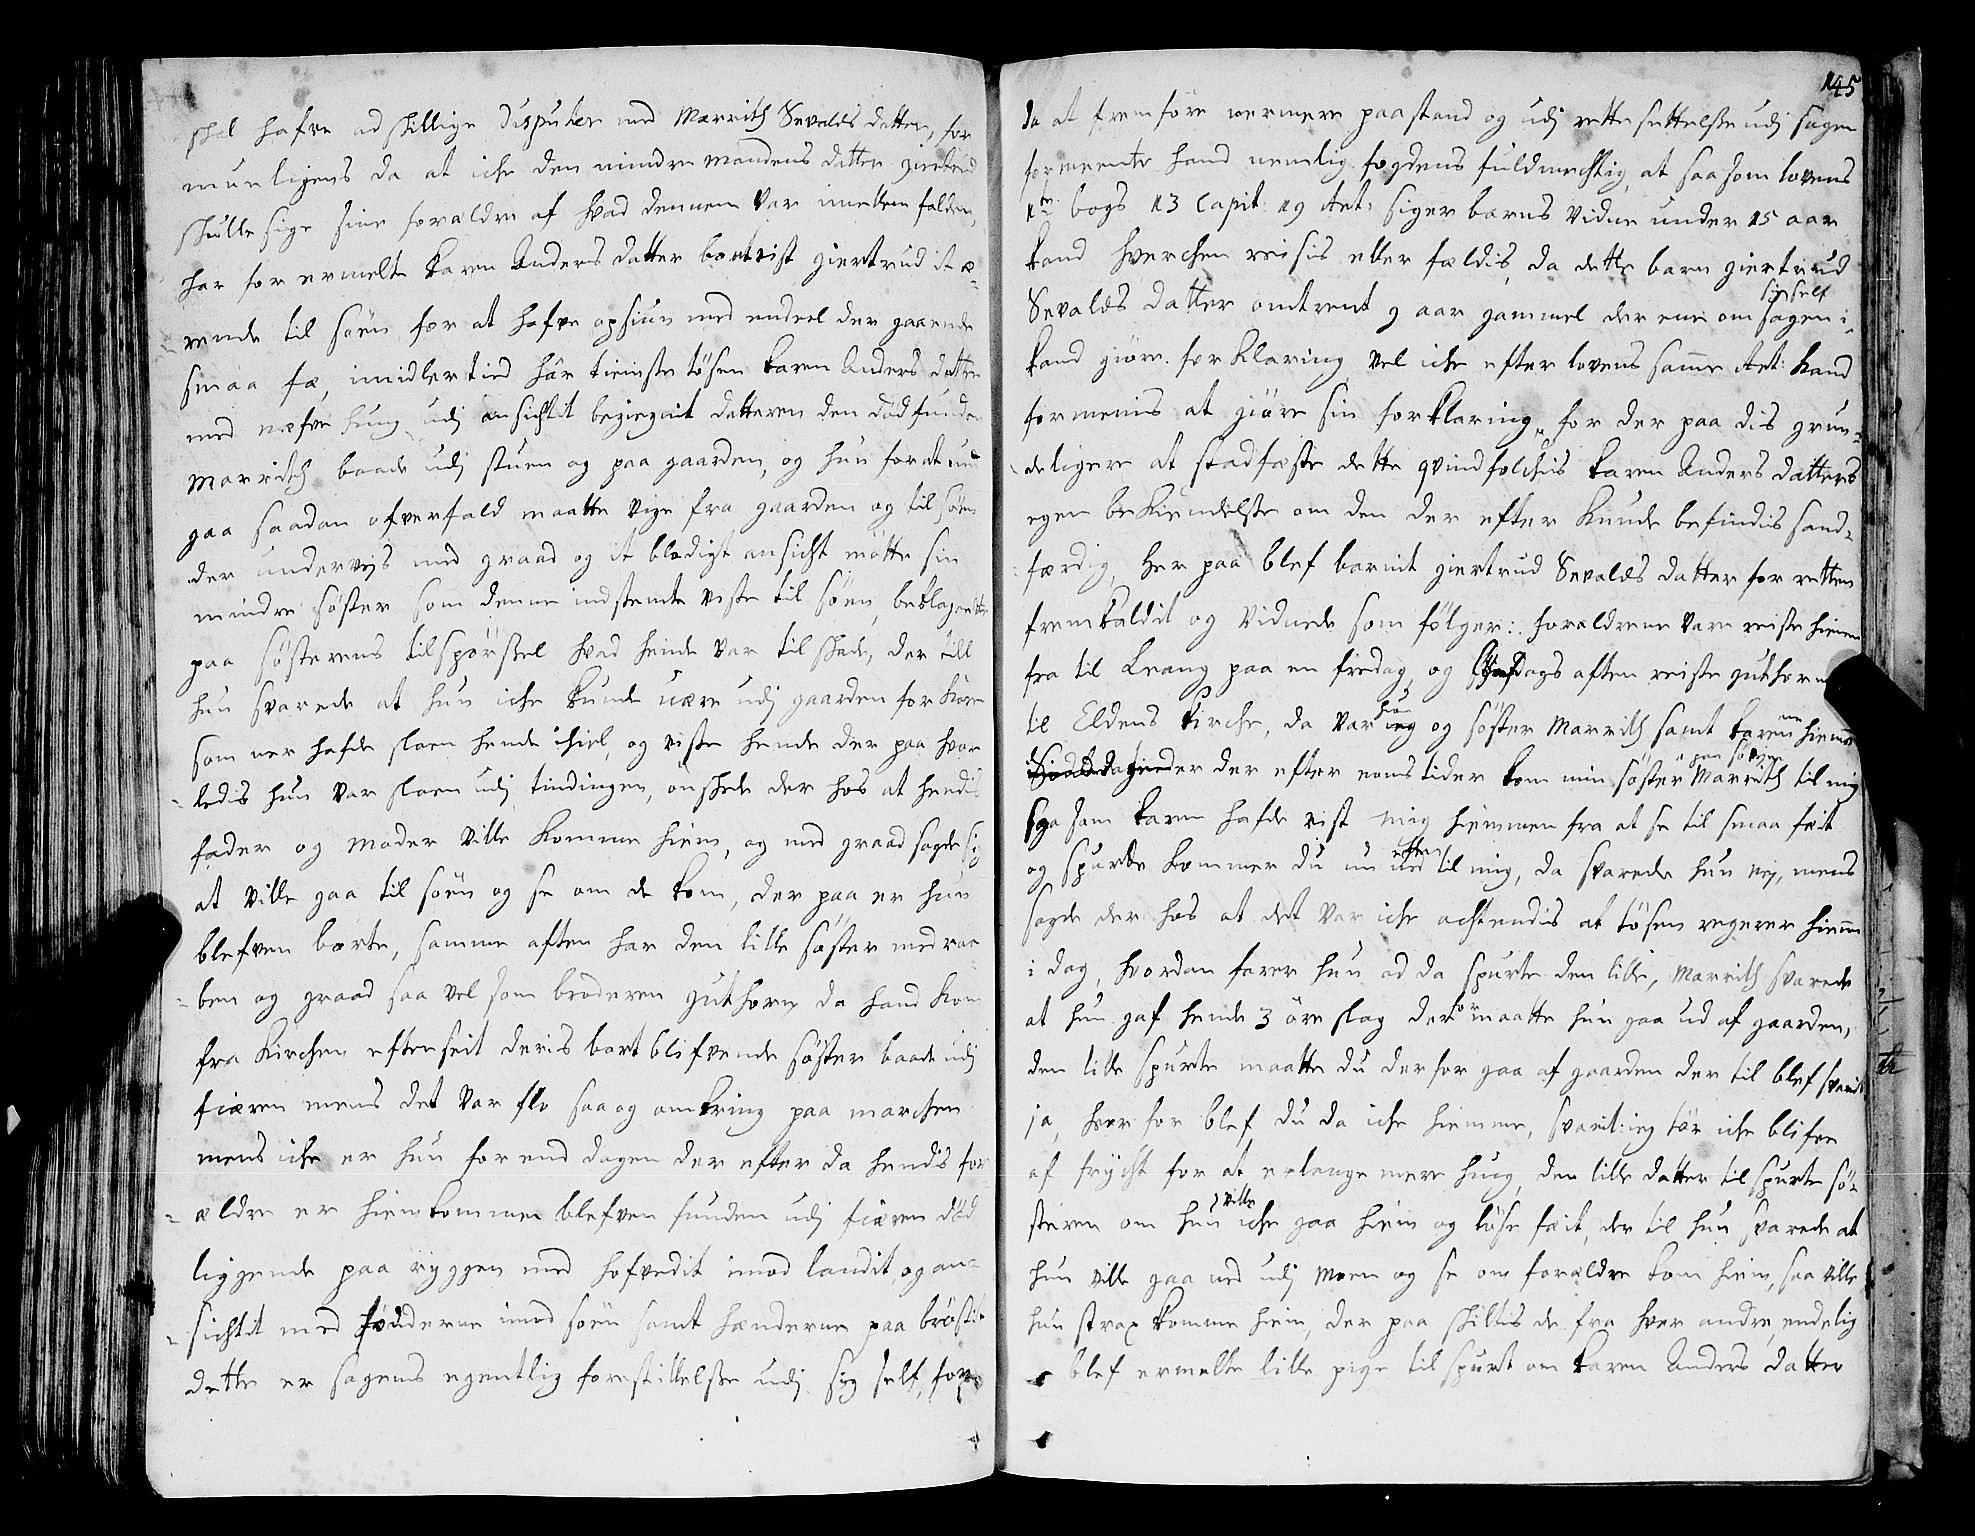 skal hafve adskillige Disputer med Marrith Sevalds datter, for
mueligens da at iche den mindre mandens datter giertrud
skulle sige sine forældre af hvad dennem var imellem falden,
har for ermelte Karen Anders datter bortvist giertrud it æ-
rende til søen for at hafve opsiun med endeel der gaaende
smaa fæ, imidlertid har tieniste tøsen Karen Anders datter
med næfve hug udj ansichtit begiegnit datteren den død fundne
Marrith baade udj stuen og paa gaarden, og hun for at und
gaa saadan ofverfald maatte vige fra gaarden og til søen
der underveys med graad og it blodigt ansicht møtte sin
mindre søster som denne indstemte viste til søen, beklagende
paa søsterens tilspørsel hvad hende var til skade, der till
hun svarede at hun iche kunde være udj gaarden for Karen
som nær hafde slaen hende ihiel, og viste hende der paa hvor
ledis hun var slaen udj tindingen, ønskede der hos at hendis
fader og moder ville komme hiem, og med graad sagde sig
at ville gaa til søen og se om de kom, der paa er hun
blefven borte, samme aften har den lille søster med raa
ben og graad saa vel som broderen guthorm da hand kom
fra kirchen efterseit deris bortblifvende søster baade udj
fiæren mens det var flo saa og omkring paa marchen
mens iche er hun forend dagen der efter da hendis for
ældre er hiemkommen blefven funden udj fiæren død
liggende paa ryggen med hofvedit imod landit, og an-
sichtit med fødderne imod søen samt hænderne paa brøstit
dette er sagens egentlig forestillelse udj sig self, for
145
da at fremføre nermere paastand og udj rettesettelse udj sagen
formeente hand nemlig fogdens fuldmechtig, at saasom lovens
1te bogs 13 Capit: 19 Art: siger barns vidne under 15 aar
kand hverchen reisis eller fældis, da dette barn giertrud
Sevalds datter omtrent 9 aar gammel der ene om sagen i
sig self
kand giøre forklaring vel iche efter lovens samme Art: kand
formenis at giøre sin forklaring, for der paa dis grun-
deligere at stadfæste dette qvindfolchis Karen Anders datters
egen bekiendelse om den der efter kunde befindis sand-
færdig, her paa blef barnit giertrud Sevalds datter for retten
fremkaldit og vidnede som følger: forældrene vare reiste hiemen
fra til Leang paa en fredag, og dags aften reiste guthorm
til Eldens kirche, da var hun og søster Marrith samt Karen hiemme
der efter nons tider kom min søster Marrith paa søen til mig
saa som Karen hafde vist mig hiemmen fra at se til smaa fæit
og spurde kommer du nu efter til mig, da svarede hun nej, mens
sagde der hos at det var iche achtendis at tøsen regerer hiemme
i dag, hvordan farer hun ad da spurte den lille, Marrith svarede
at hun gaf hende 3 øre slag derfor maatte hun gaa ud af gaarden,
den lille spurte maatte du derfor gaa af gaarden der til blef svarit
ja, hvor for blef du da iche hiemme, svarit: ieg tør iche blifve
af frycht for at erlange mere hug, den lille datter tilspurte sø-
steren om hun ville iche gaa hiem og løse fæit, der til hun svarede at
hun ville gaa ned udj moen og se om forældre kom hiem, saa ville
hun strax komme hiem, der paa skiltis de fra hver andre, endelig
blef ermelte lille pige tilspurt om Karen Anders datter